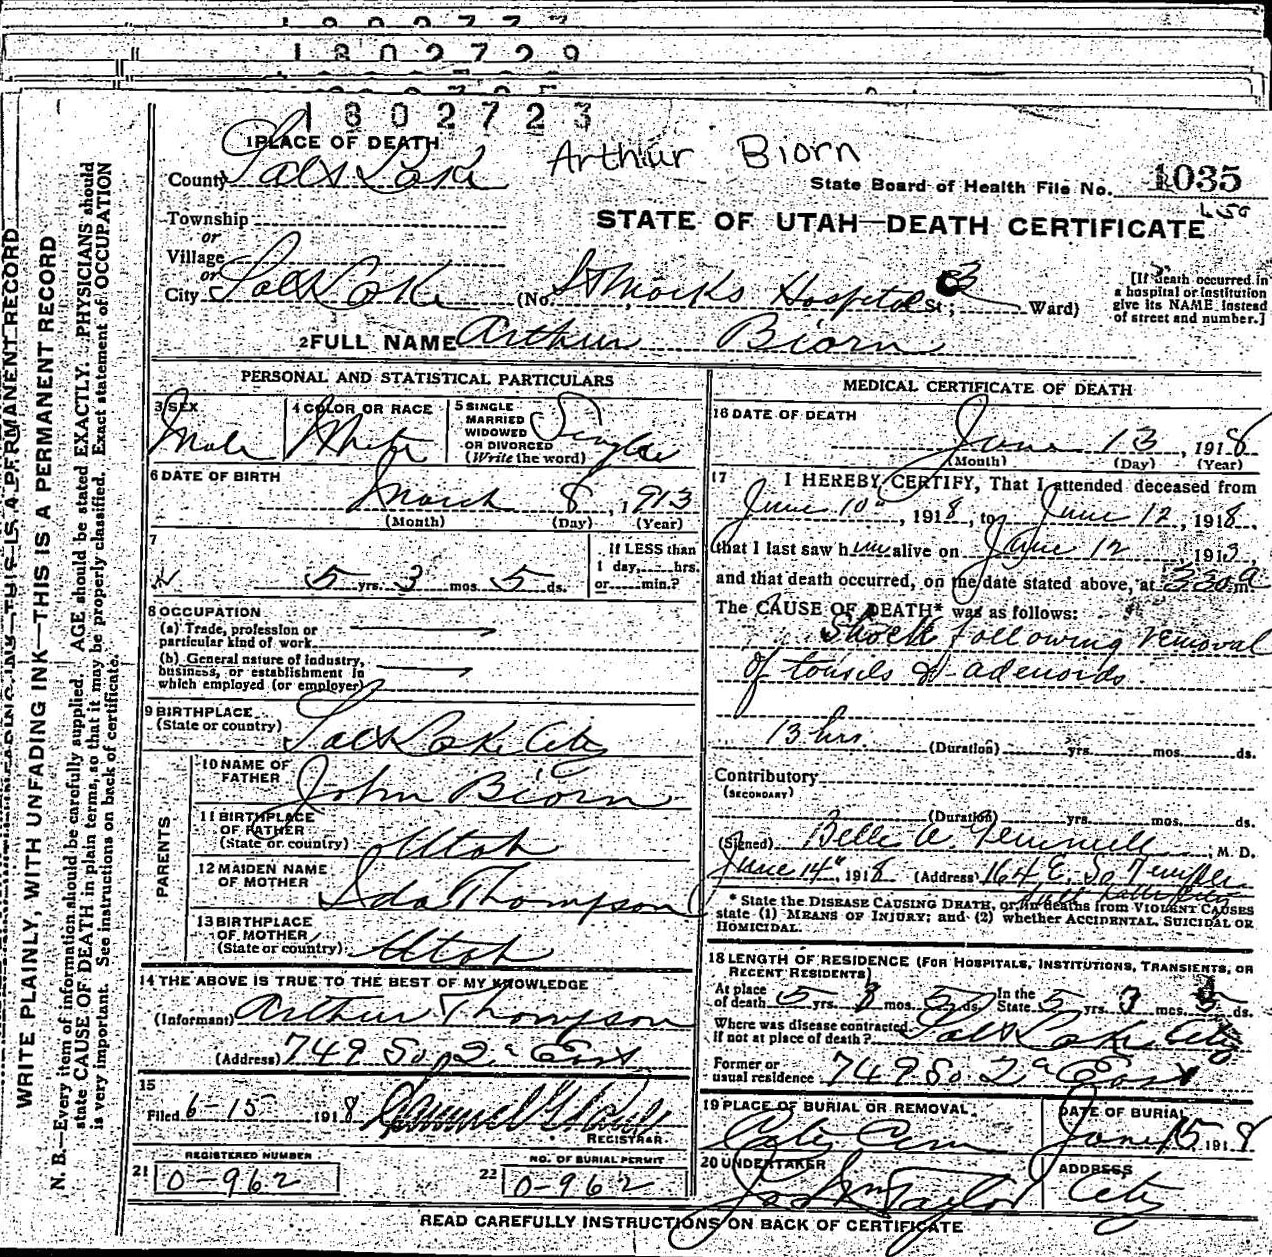 1802729
1802723
1 PLACE OF DEATH
Arthur Biorn
County Salt Lake
State Board of Health File No. 1035
Township
or
STATE OF UTAH—DEATH CERTIFICATE
Village
or
City Salt Lake (No. St Marks Hospital St; 3 Ward)
[If death occurred in
a hospital or institution
give its NAME instead
of street and number.]
2 FULL NAME Arthur Biorn
PERSONAL AND STATISTICAL PARTICULARS
3 SEX
Male
4 COLOR OR RACE
White
5 SINGLE
MARRIED
WIDOWED
OR DIVORCED
(Write the word)
Single
6 DATE OF BIRTH
March 8, 1913
(Month) (Day) (Year)
7
5 yrs. 3 mos. 5 ds.
If LESS than
1 day, hrs.
or min.?
8 OCCUPATION
(a) Trade, profession or
particular kind of work
(b) General nature of industry,
business, or establishment in
which employed (or employer)
9 BIRTHPLACE
(State or country)
Salt Lake City
PARENTS
10 NAME OF
FATHER
John Biorn
11 BIRTHPLACE
OF FATHER
(State or country)
Utah
12 MAIDEN NAME
OF MOTHER
Ida Thompson
13 BIRTHPLACE
OF MOTHER
(State or country)
Utah
14 THE ABOVE IS TRUE TO THE BEST OF MY KNOWLEDGE
(Informant) Arthur Thompson
(Address) 749 So 2d East
15
Filed 6-15 1918
REGISTRAR
21 REGISTERED NUMBER
0-962
22 NO. OF BURIAL PERMIT
0-962
MEDICAL CERTIFICATE OF DEATH
16 DATE OF DEATH
June 13, 1918
(Month) (Day) (Year)
17 I HEREBY CERTIFY, That I attended deceased from
June 10", 1918, to June 12, 1918,
that I last saw him alive on June 12 1913
and that death occurred, on the date stated above, at 330 a m.
The CAUSE OF DEATH* was as follows:
Shock following removal
of tonsils & adenoids
13 hrs.
(Duration) yrs. mos. ds.
Contributory
(SECONDARY)
(Duration) yrs. mos. ds.
(Signed) Belle A. Gemmell, M. D.
June 14", 1918 (Address) 164 E. So Temple
* State the DISEASE CAUSING DEATH, or, in deaths from VIOLENT CAUSES
state (1) MEANS OF INJURY; and (2) whether ACCIDENTAL, SUICIDAL OR
HOMICIDAL.
18 LENGTH OF RESIDENCE (FOR HOSPITALS, INSTITUTIONS, TRANSIENTS, OR
RECENT RESIDENTS)
At place
of death 5 yrs. 3 mos. 5 ds. In the
State 5 yrs. 3 mos. 5 ds.
Where was disease contracted
if not at place of death? Salt Lake City
Former or
usual residence 749 So 2d East
19 PLACE OF BURIAL OR REMOVAL
City Cem
DATE OF BURIAL
June 15, 1918
20 UNDERTAKER
Jos Wm Taylor
ADDRESS
City
READ CAREFULLY INSTRUCTIONS ON BACK OF CERTIFICATE
WRITE PLAINLY, WITH UNFADING INK—THIS IS A PERMANENT RECORD
N. B.—Every item of information should be carefully supplied. AGE should be stated EXACTLY. PHYSICIANS should
state CAUSE OF DEATH in plain terms, so that it may be properly classified. Exact statement of OCCUPATION
is very important. See instructions on back of certificate.